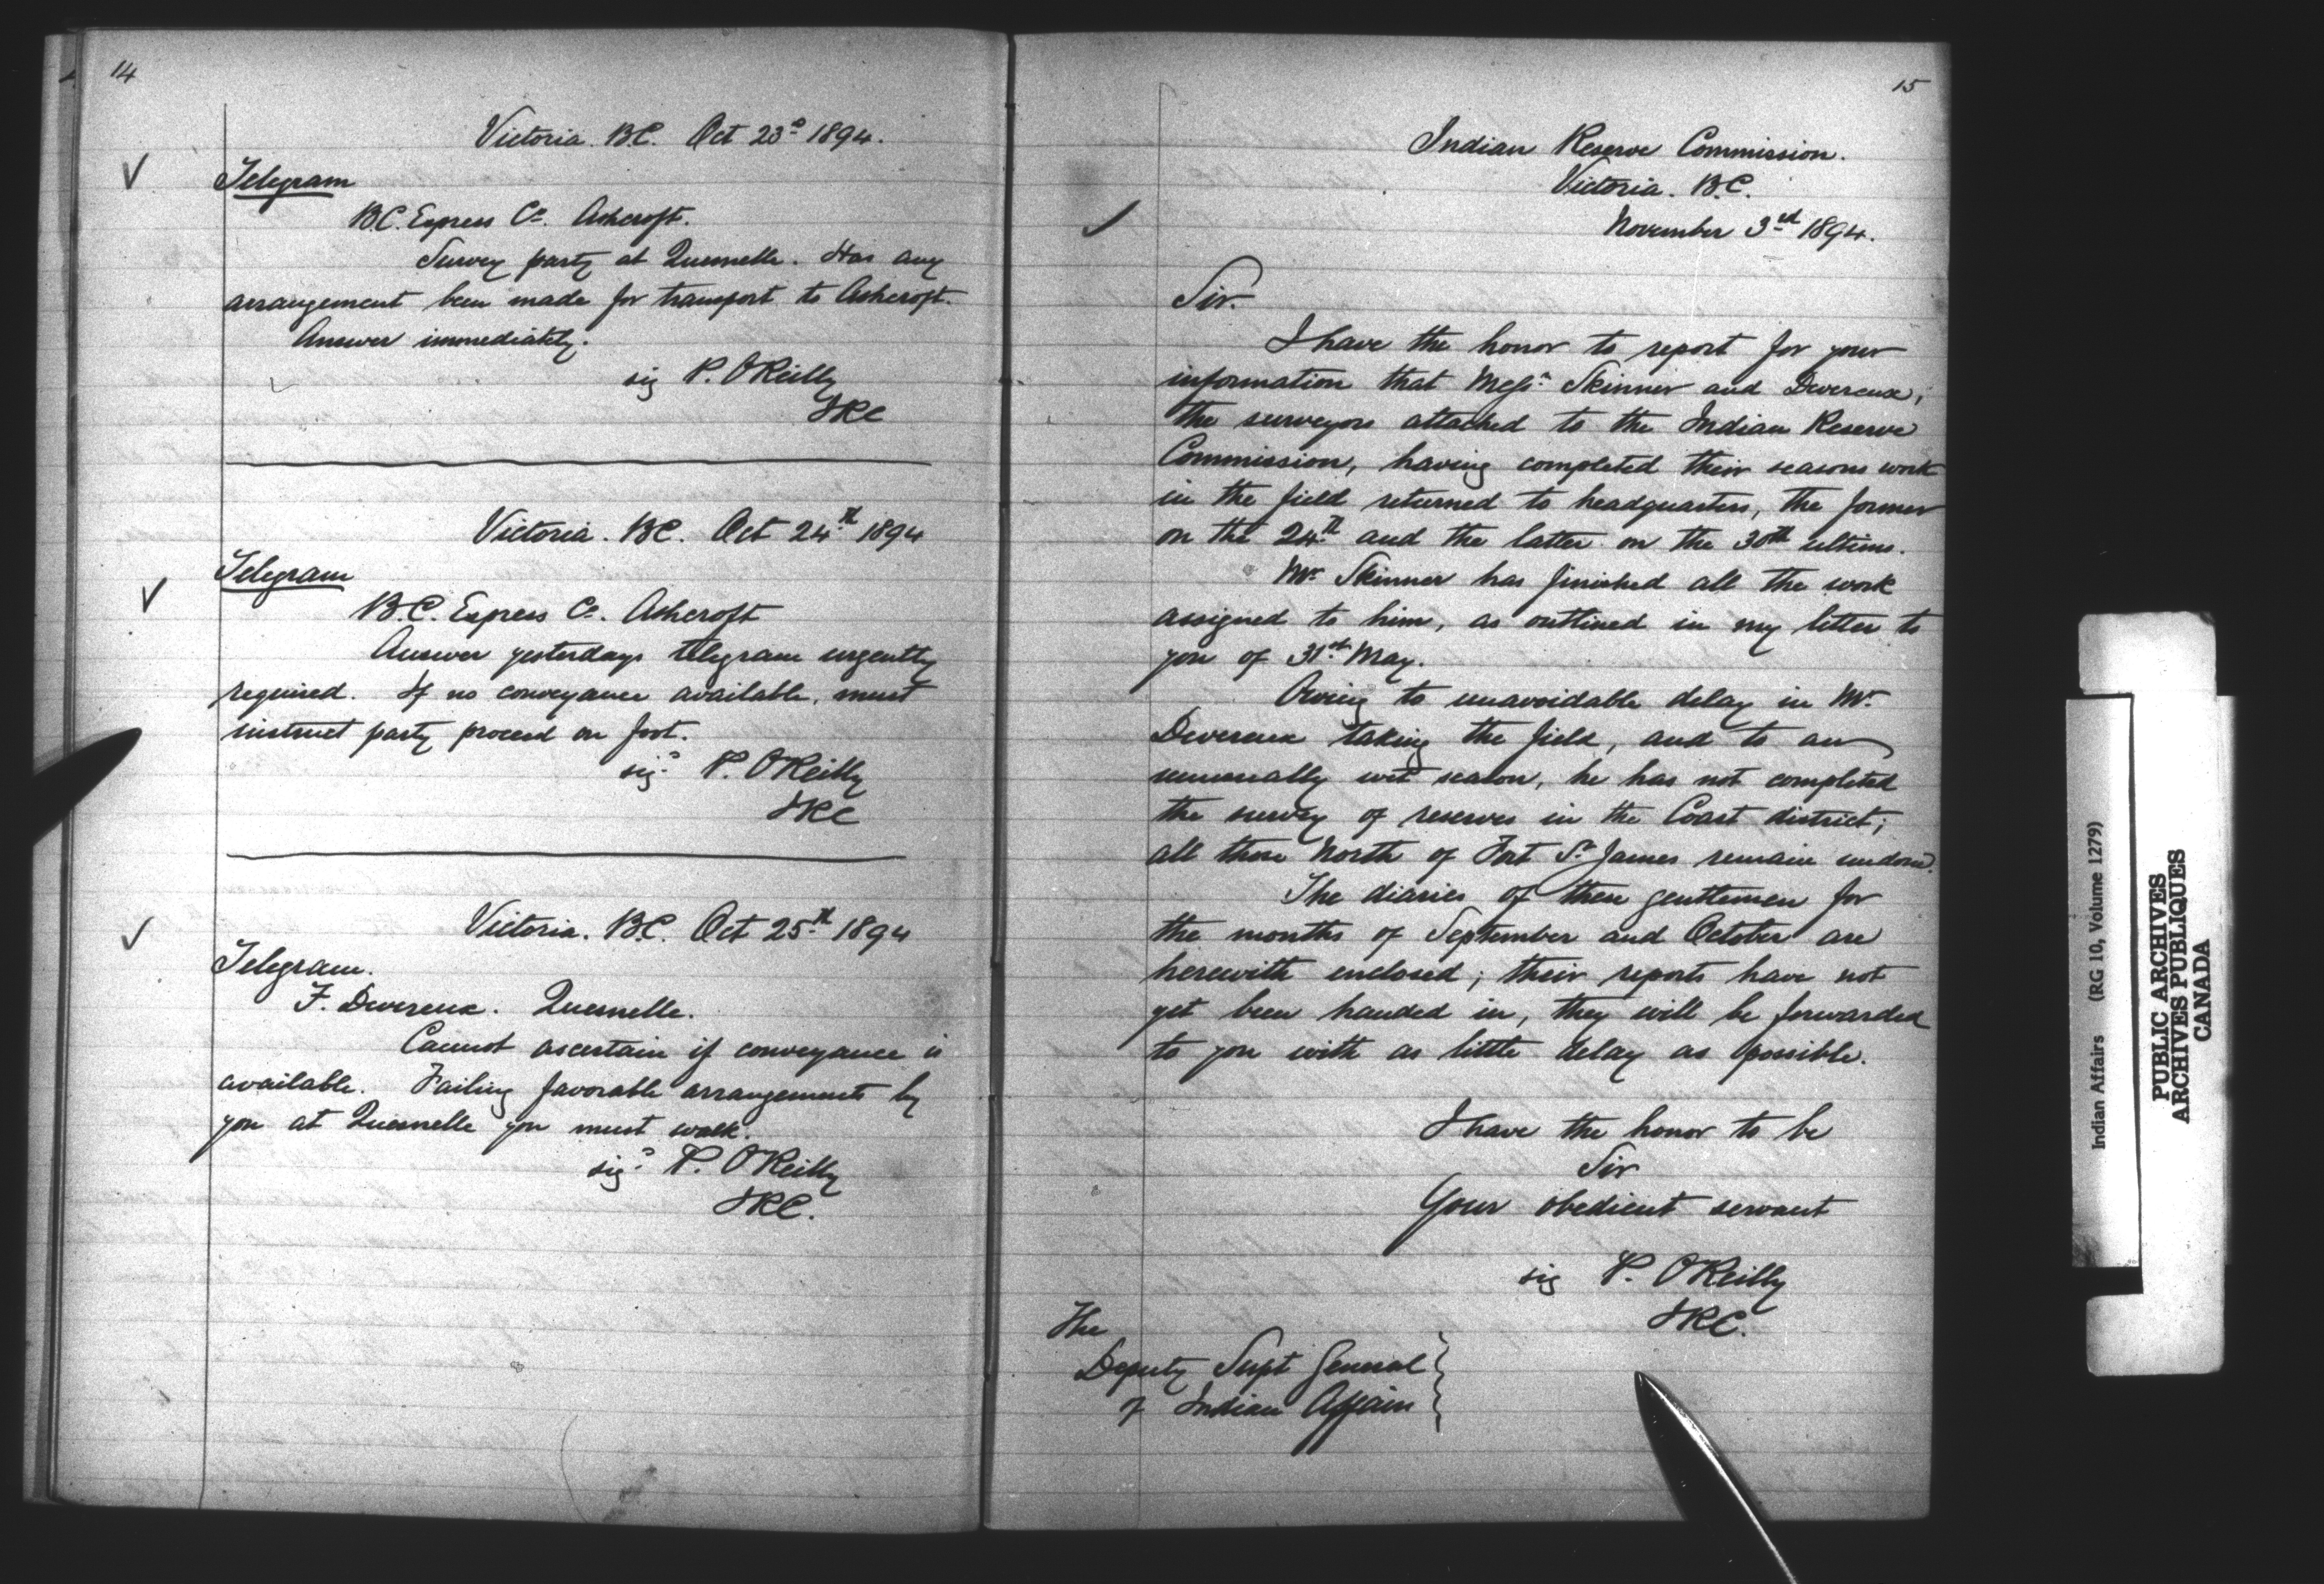 14
Victoria. B.C. Oct 23d 1894.
Telegram
B.C. Express Co. Ashcroft.
Survey party at Quesnelle. Has any
arrangement been made for transport to Ashcroft.
Answer immediately.
sig P. O'Reilly
IRC
Victoria. B.C. Oct 24th 1894
Telegram
B.C. Express Co. Ashcroft
Answer yesterdays telegram urgently
required. If no conveyance available, must
instruct party proceed on foot.
sigd P. O'Reilly
IRC
Victoria. B.C. Oct 25th 1894
Telegram.
F. Devereux. Quesnelle.
Cannot ascertain if conveyance is
available. Failing favorable arrangements by
you at Quesnelle you must walk.
sigd P. O'Reilly
IRC.
15
Indian Reserve Commission.
Victoria. B.C.
November 3rd 1894.
Sir.
I have the honor to report for your
information that Messrs Skinner and Devereux,
the surveyors attached to the Indian Reserve
Commission, having completed their seasons work
in the field returned to headquarters, the former
on the 24th and the latter on the 30th ultimo.
Mr Skinner has finished all the work
assigned to him, as outlined in my letter to
you of 31st May.
Owing to unavoidable delay in Mr
Devereux taking the field, and to an
unusually wet season, he has not completed
the survey of reserves in the Coast district;
all those North of Fort St James remain undone.
The diaries of these gentlemen for
the months of September and October are
herewith enclosed; their reports have not
yet been handed in, they will be forwarded
to you with as little delay as possible.
I have the honor to be
Sir
Your obedient servant
sig P. O'Reilly
IRC.
The
Deputy Supt General
of Indian Affairs
Indian Affairs (RG 10, Volume 1279)
PUBLIC ARCHIVES
ARCHIVES PUBLIQUES
CANADA